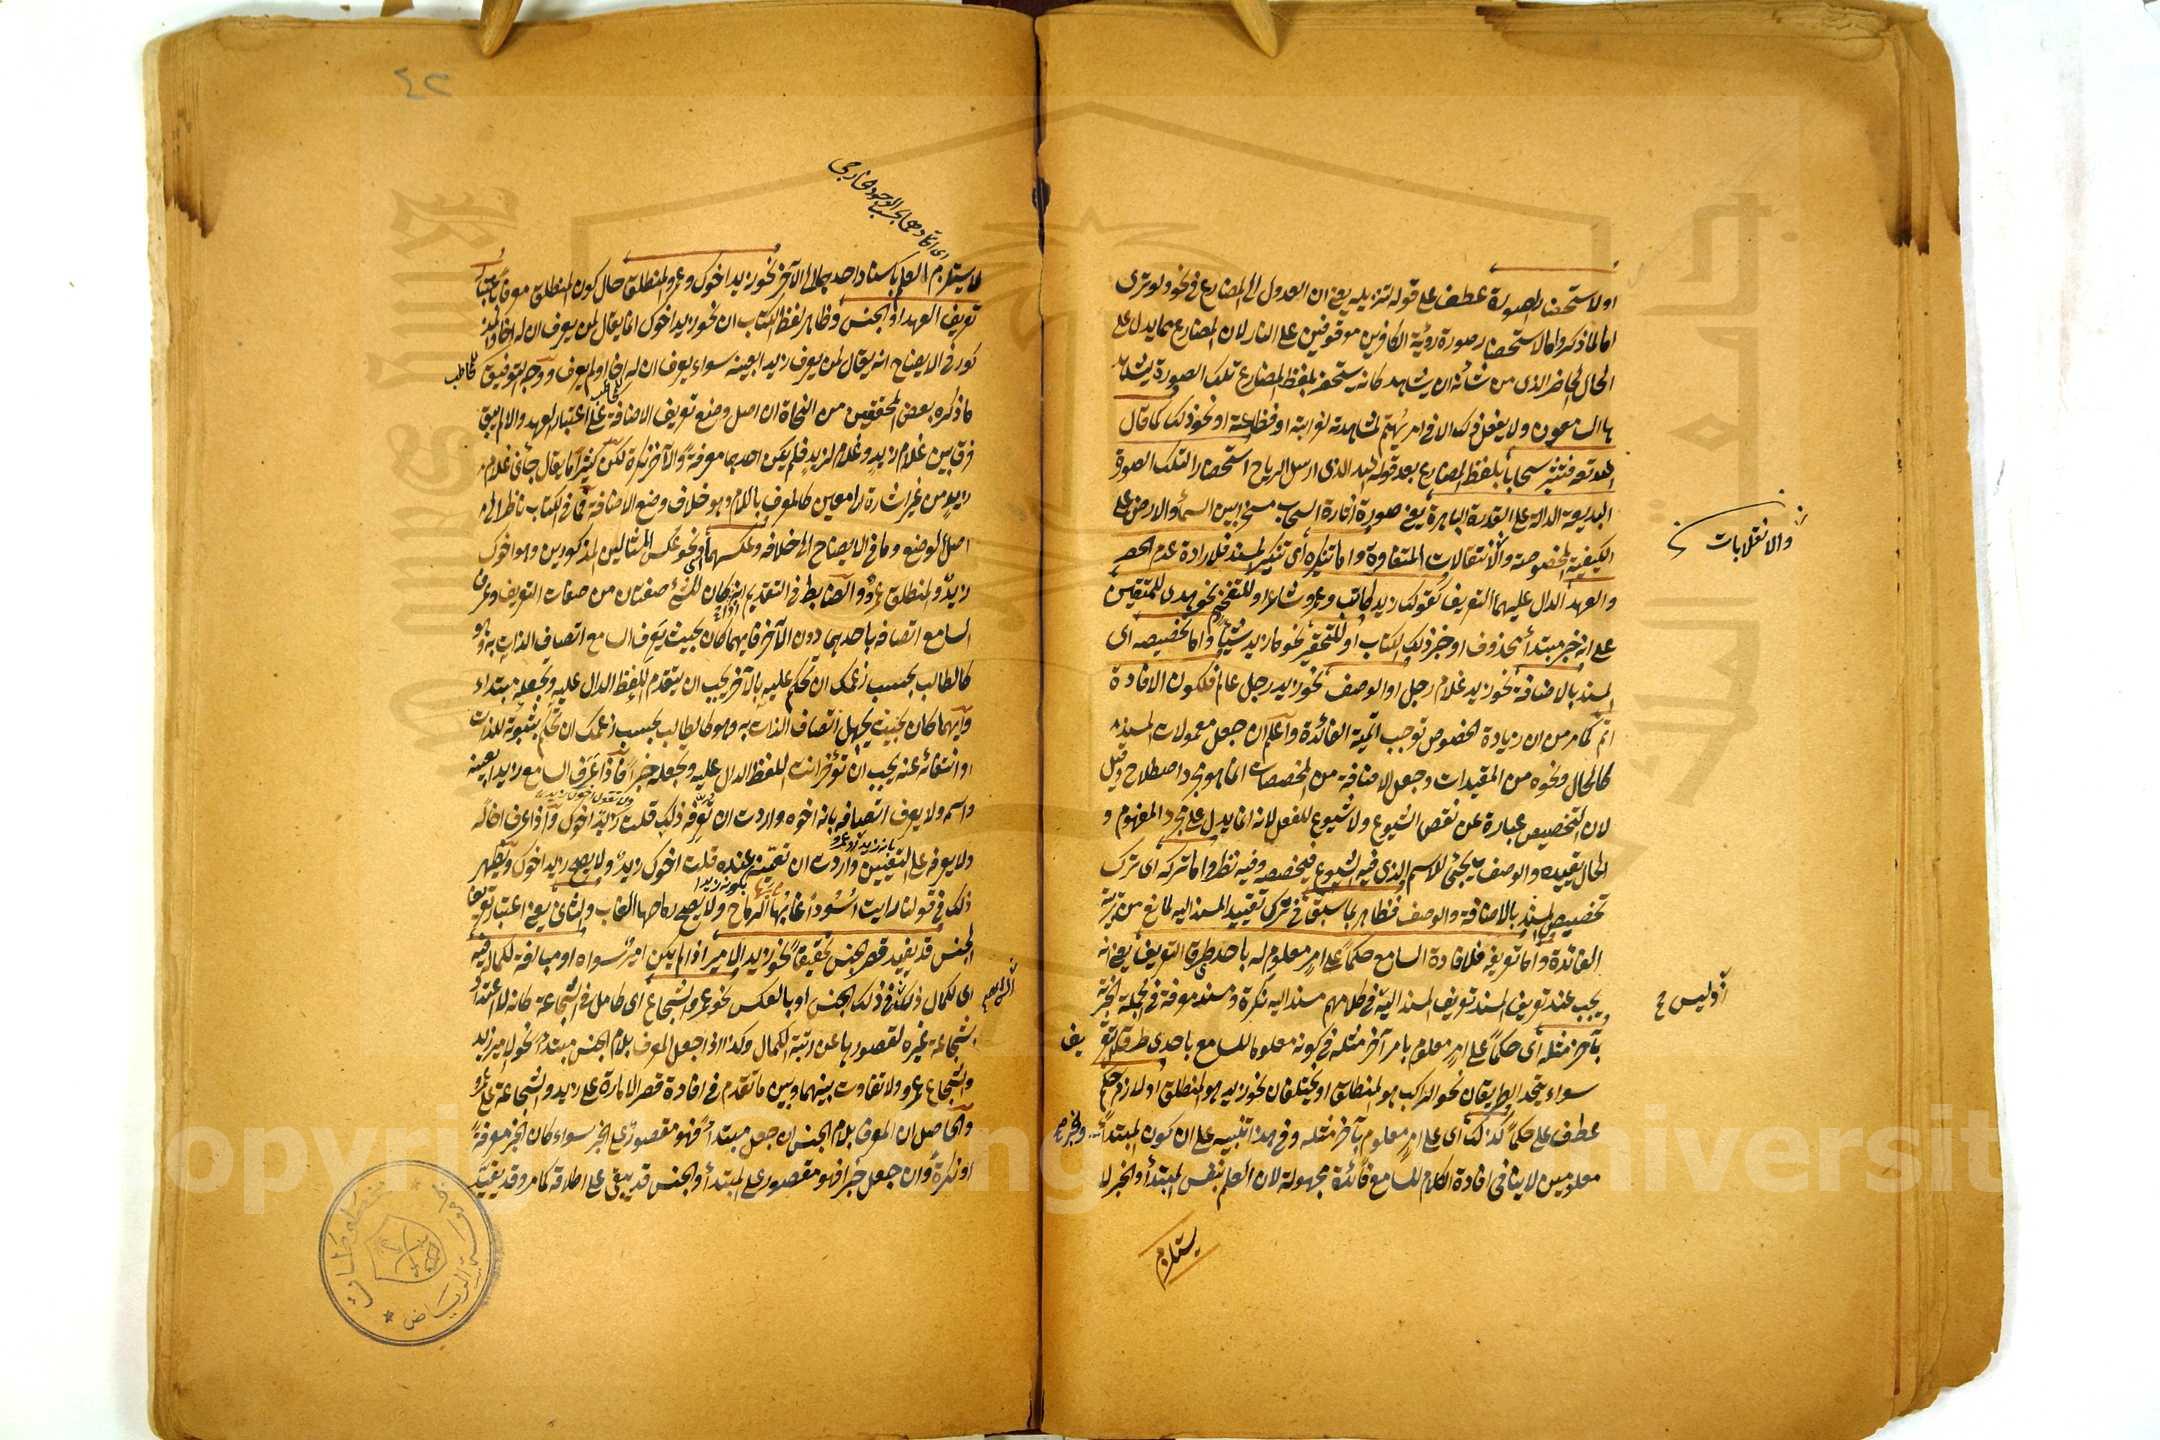 او لاستحضار الصورة عطف على قوله لتنزيله يعني ان العدول الى المضارع في نحو ولو ترى
اما لما ذكر واما لاستحضار صورة رؤية الكافرين موقوفين على النار لان المضارع مما يدل على
الحال الحاضر الذي من شأنه ان يشاهد كانه يستحضر بلفظ المضارع تلك الصورة ليشاهد
ها السامعون ولا يفعل ذلك الا في امر يهتم لمشاهدته لغرابته او فظاعته او نحو ذلك كما قال
الله تعالى فتثير سحابا بلفظ المضارع بعد قوله الله الذي ارسل الرياح استحضارا لتلك الصورة
البديعة الدالة على القدرة الباهرة يعني صورة اثارة السحاب مسخرا بين السماء والارض على
الكيفية المخصوصة والانتقالات المتفاوتة واما تنكيره اي تنكير المسند فلارادة عدم الحصر
والانقلابات
والعهد الدال عليهما التعريف كقولك زيد كاتب وعمرو شاعر او للتفخيم نحو هدى للمتقين
على انه خبر مبتدأ محذوف او خبر ذلك الكتاب او للتحقير نحو ما زيد شيئا واما تخصيصه اي
المسند بالاضافة نحو زيد غلام رجل او الوصف نحو زيد رجل عالم فلكون الافادة
اتم كما مر من ان زيادة الخصوص توجب اتمية الفائدة واعلم ان جعل معمولات المسند
كالحال ونحوه من المقيدات وجعل الاضافة من المخصصات انما هو مجرد اصطلاح وقيل
لان التخصيص عبارة عن نقص الشيوع ولا شيوع للفعل لانه انما يدل على مجرد المفهوم و
الحال يقيده والوصف يجئ للاسم الذي فيه الشيوع فيخصصه وفيه نظر واما تركه اي ترك
تخصيص المسند بالاضافة والوصف فظاهر بما سبق في ترك تقييد المسند اليه لمانع من تربية
الفائدة واما تعريفه فلافادة السامع حكما على امر معلوم له باحد طرق التعريف يعني انه
يجب عند تعريف المسند تعريف المسند اليه في كلامهم مسند اليه نكرة ومسند معرفة في الجملة الخبرية
اذ ليس صح
بآخر مثله اي حكما على امر معلوم بامر آخر مثله في كونه معلوما للسامع باحدى طرق التعر
يف
سواء يتحد الطريقان نحو الراكب هو المنطلق او يختلفان نحو زيد هو المنطلق او لازم حكم
عطف على حكما كذلك اي على امر معلوم بآخر مثله وفي هذا تنبيه على ان كون المبتدأ
والخبر صح
معلومين لا ينافي افادة الكلام للسامع فائدة مجهولة لان العلم بنفس المبتدأ والخبر لا
يستلزم
٤٢
لا يستلزم العلم باسناد احدهما الى الآخر نحو زيد اخوك وعمرو المنطلق حال كون المنطلق معرفا باعتبار
تعريف العهد او الجنس وظاهر لفظ الكتاب ان نحو زيد اخوك انما يقال لمن يعرف ان له اخا والمذ
كور في الايضاح انه يقال لمن يعرف زيدا بعينه سواء يعرف ان له اخا او لم يعرف ووجه التوفيق
للمخاطب
ما ذكره بعض المحققين من النحاة ان اصل وضع تعريف الاضافة على اعتبار العهد والا لم يبق
فرق بين غلام زيد وغلام لزيد فلم يكن احدهما معرفة والآخر نكرة لكن كثيرا ما يقال جاءني غلام
زيد من غير اشارة الى معين كالمعرف باللام وهو خلاف وضع الاضافة فما في الكتاب ناظر الى
اصل الوضع وما في الايضاح الى خلافه وعكسهما اي نحو عكس المثالين المذكورين وهو اخوك
زيد والمنطلق عمرو والضابط في التقديم انه اذا كان للشئ صفتان من صفات التعريف وعرف
السامع اتصافه باحديهما دون الآخر فايهما كان بحيث يعرف السامع اتصاف الذات به وهو
كالطالب بحسب زعمك ان تحكم عليه بالآخر يجب ان يتقدم اللفظ الدال عليه وتجعله مبتداء
وايهما كان بحيث يجهل اتصاف الذات به وهو كالطالب بحسب زعمك ان تحكم بثبوته للذات
او انتفائه عنه يجب ان تؤخر انت اللفظ الدال عليه وتجعله خبرا فاذا عرف السامع زيدا بعينه
واسمه ولا يعرف اتصافه بانه اخوه واردت ان تعرفه ذلك قلت زيد اخوك واذا عرف اخا له
ولا يعرفه على التعيين واردت ان تعينه عنده قلت اخوك زيد ولا يصح زيد اخوك ويظهر
ذلك في قولنا رايت اسودا غابها الرماح ولا يصح رماحها الغاب والثاني يعني اعتبار تعريف
الجنس قد يفيد قصر الجنس تحقيقا نحو زيد الامير اذا لم يكن امير سواه او مبالغة لكماله فيه
اي لكمال ذلك في ذلك الجنس او بالعكس نحو عمرو الشجاع اي كامل في الشجاعة كانه لا اعتداد
بشجاعة غيره لقصورها عن رتبة الكمال وكذا اذا جعل المعرف بلام الجنس مبتدأ نحو الامير زيد
والشجاع عمرو ولا تفاوت بينهما وبين ما تقدم في افادة قصر الامارة على زيد والشجاعة على عمرو
والحاصل ان المعرف بلام الجنس ان جعل مبتدأ فهو مقصور على الخبر سواء كان الخبر معرفة
او نكرة وان جعل خبرا فهو مقصور على المبتدأ والجنس قد يبقى على اطلاقه كما مر وقد يقيد